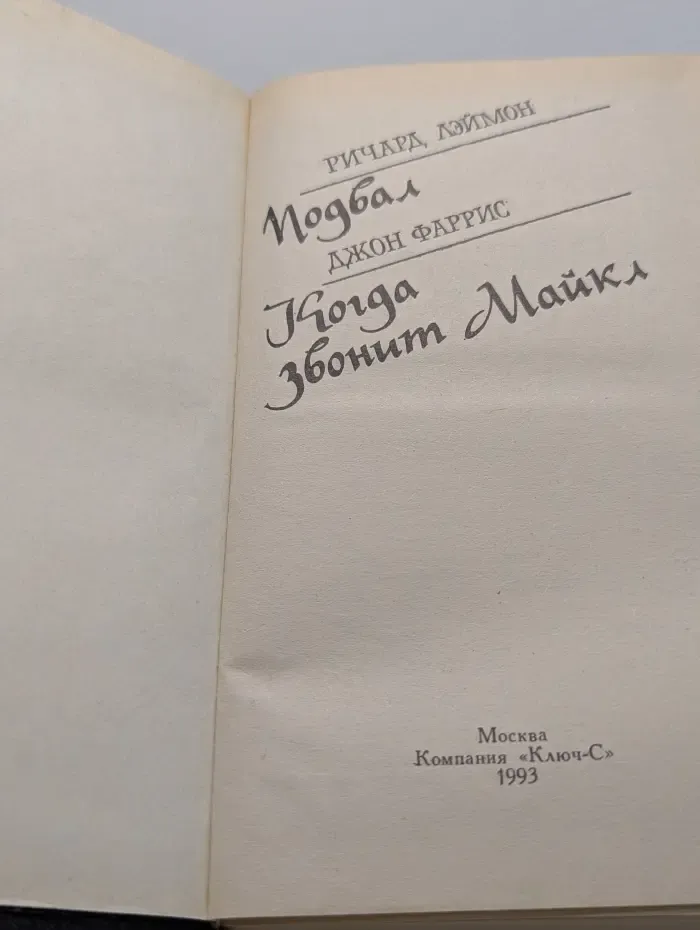 РИЧАРД ЛЭЙМОН
Подвал
ДЖОН ФАРРИС
Когда
звонит Майкл
Москва
Компания «Ключ-С»
1993